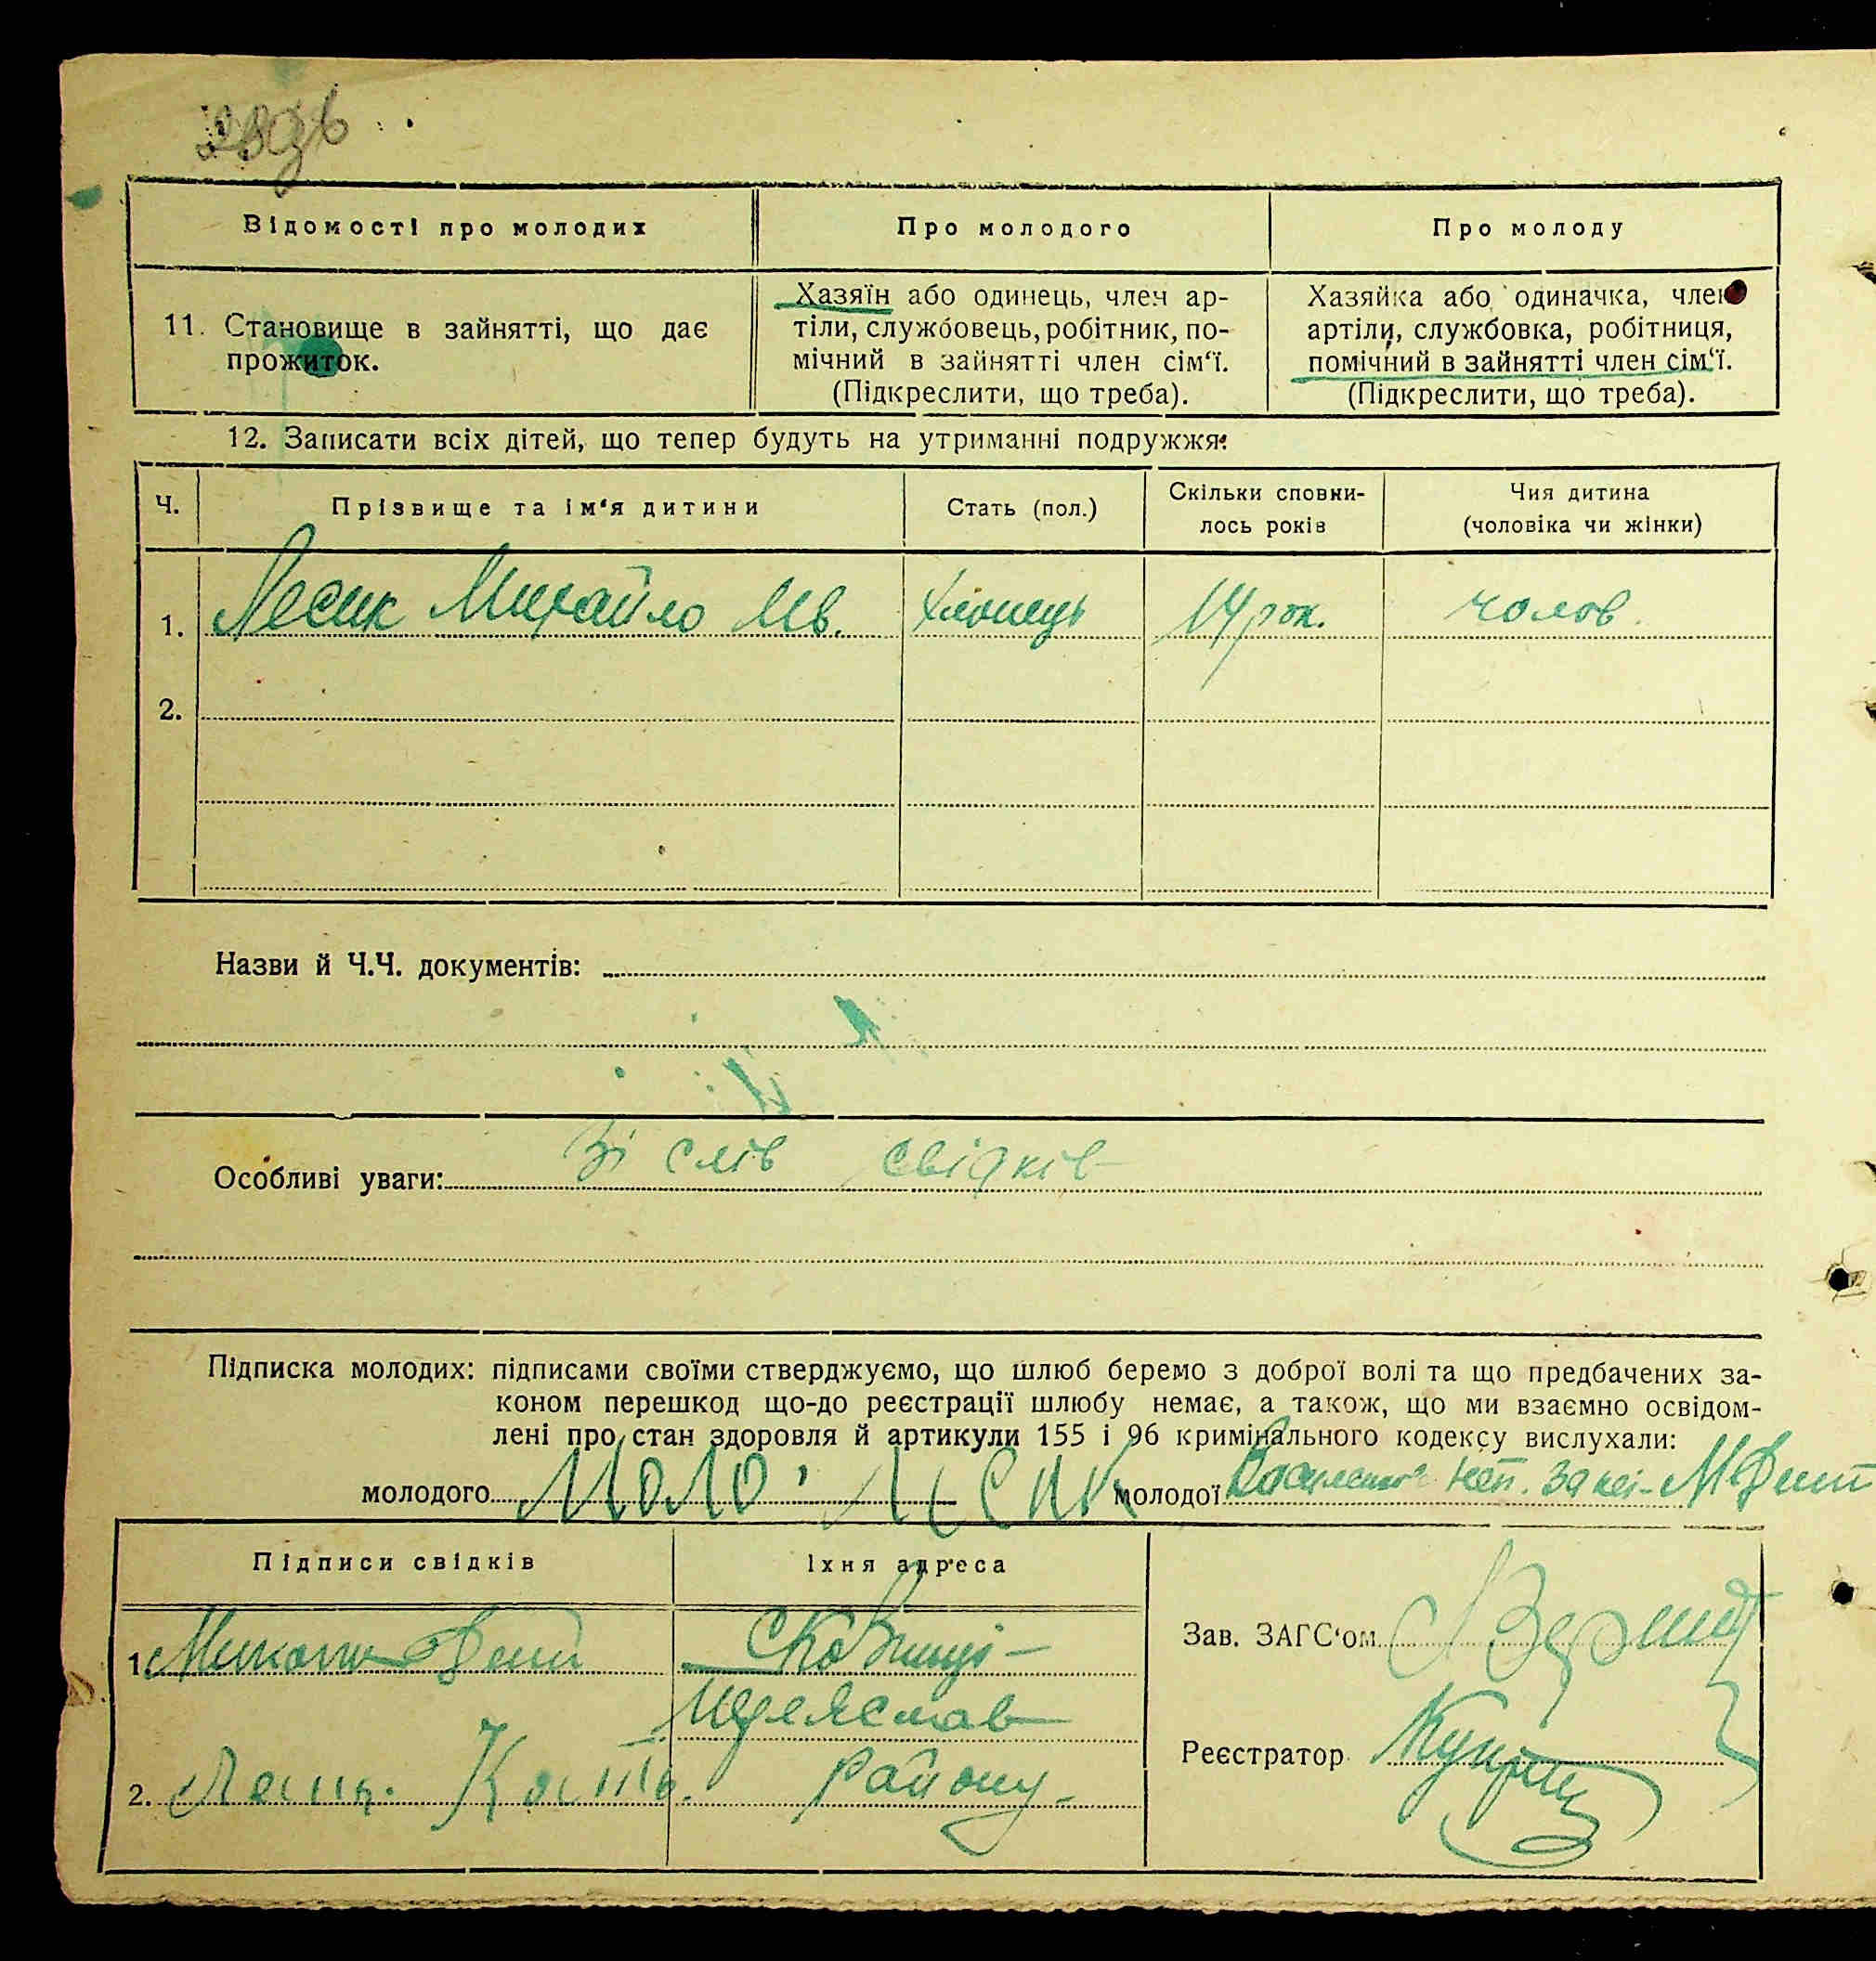 Відомості про молодих
Про молодого
Про молоду
11. Становище в зайнятті, що дає
прожиток.
Хазяїн або одинець, член ар-
тіли, службовець, робітник, по-
мічний в зайнятті член сім‘ї.
(Підкреслити, що треба).
Хазяйка або одиначка, член
артіли, службовка, робітниця,
помічний в зайнятті член сім‘ї.
(Підкреслити, що треба).
12. Записати всіх дітей, що тепер будуть на утриманні подружжя:
Ч.
Прізвище та ім‘я дитини
Стать (пол.)
Скільки сповни-
лось років
Чия дитина
(чоловіка чи жінки)
1. Лесик Михайло Ив. хлопець 14 рок. чолов.
2.
Назви й Ч.Ч. документів:
Особливі уваги: Зі слів свідків
Підписка молодих: підписами своїми стверджуємо, що шлюб беремо з доброї волі та що предбачених за-
коном перешкод що-до реєстрації шлюбу немає, а також, що ми взаємно освідом-
лені про стан здоровля й артикули 155 і 96 кримінального кодексу вислухали:
молодого Лесик молодої неп.
Підписи свідків
Їхня адреса
1.
Зав. ЗАГС‘ом
Реєстратор
2. району